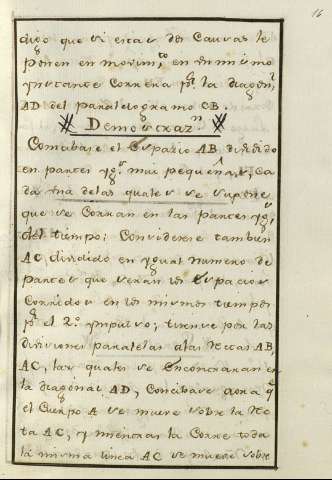 16
digo que si estas dos Causas le
ponen en movim.to en un mismo
ynstante Correra p.r la diagon.l
AD del paralelogramo CB.
Demostraz.n
Concibase el Espazio AB dividido
en partes yg.s muy pequeñas, ca
da una delas quales se supone
que se Corran en las partes yg.s
del tiempo; Considerese tambien
AC, dividido en ygual numero de
partes que seran los Espacios
Corridos en los mismos tiempos
p.r el 2.o ympulso; tirense por las
divisiones paralelas alas Rectas AB,
AC, las quales se Encontraran en
la diagonal AD, Concibase aora q.e
el Cuerpo A se mueve sobre la Re
ta AC, y mientras la Corre toda
la misma linea AC se mueve sobre